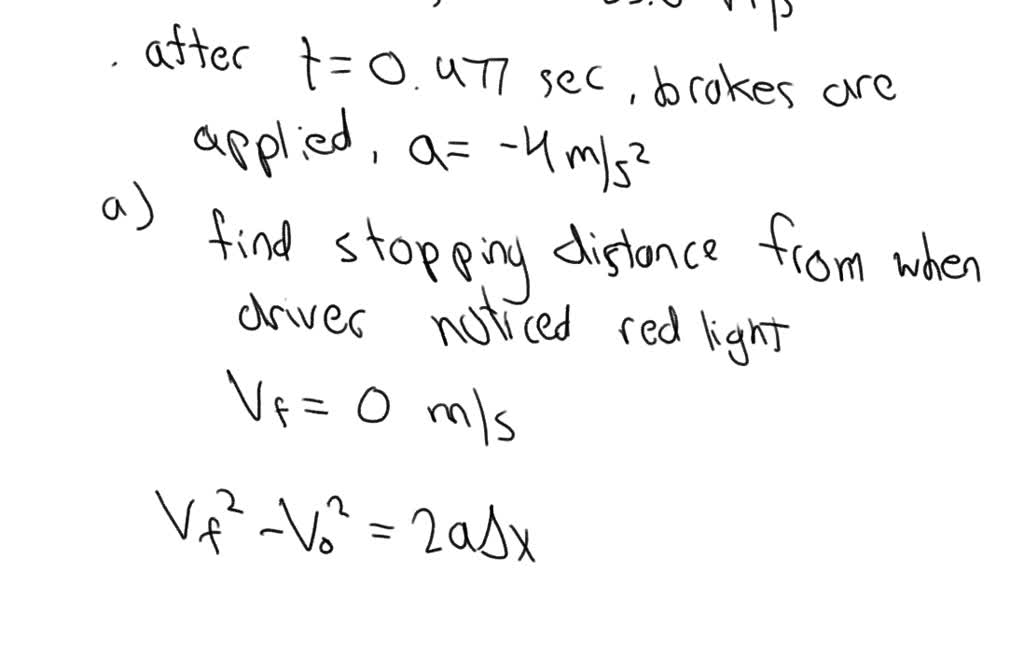 . after t = 0.477 sec, brakes are
applied, a = -4 m/s²
a)
find stopping distance from when
driver noticed red light
V_f = 0 m/s
V_f² - V_0² = 2aΔx